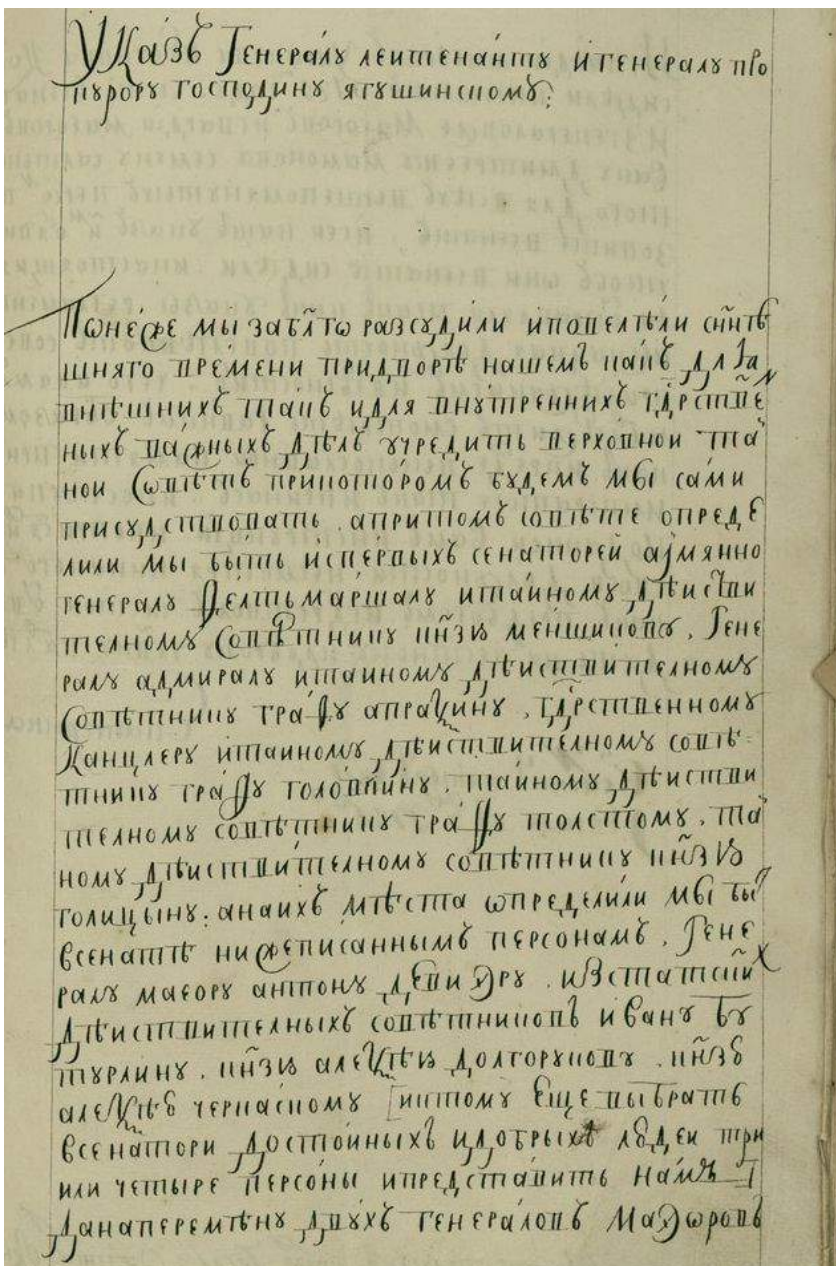 Указъ Генералу леитенанту и генералу про
курору господину ягушинскому:
Понеже мы заблго разсудили и повелѣли с нынѣ
шняго времени при дворѣ нашемъ какъ для
внѣшнихъ такъ и для внутреннихъ гдрствe
ныхъ важныхъ дѣлъ учредить верховнои таи
нои Совѣтъ при которомъ будемъ мы сами
присудствовать. а при томъ совѣте опреде
лили мы быть ис первыхъ сенаторей а имянно
генералу Фелтьмаршалу и таиному дѣистви
телному Совѣтнику кнзю меншикову, Гене
ралу адмиралу и таиному дѣиствителному
Совѣтнику графу апраѯину, гдрственному
Канцлеру и таиному дѣиствителному совѣ
тнику графу головкину, таиному дѣистви
телному совѣтнику графу толстому, таи
ному дѣиствителному совѣтнику кнзю
голицыну: а на ихъ мѣста ѡпределили мы быт
в сенатѣ нижеписаннымъ персонамъ, Гене
ралу маеору антону девиэру, из статскихъ
дѣиствителныхъ совѣтниковъ ивану бу
турлину, кнзю алеѯѣю долгорукову, кнзю
алеѯѣю черкаскому и к тому еще выбрать
в сенатори достоиныхъ и добрыхъ людеи три
или четыре персоны и представить намъ
да на перемѣну двухъ генераловъ маэоровъ